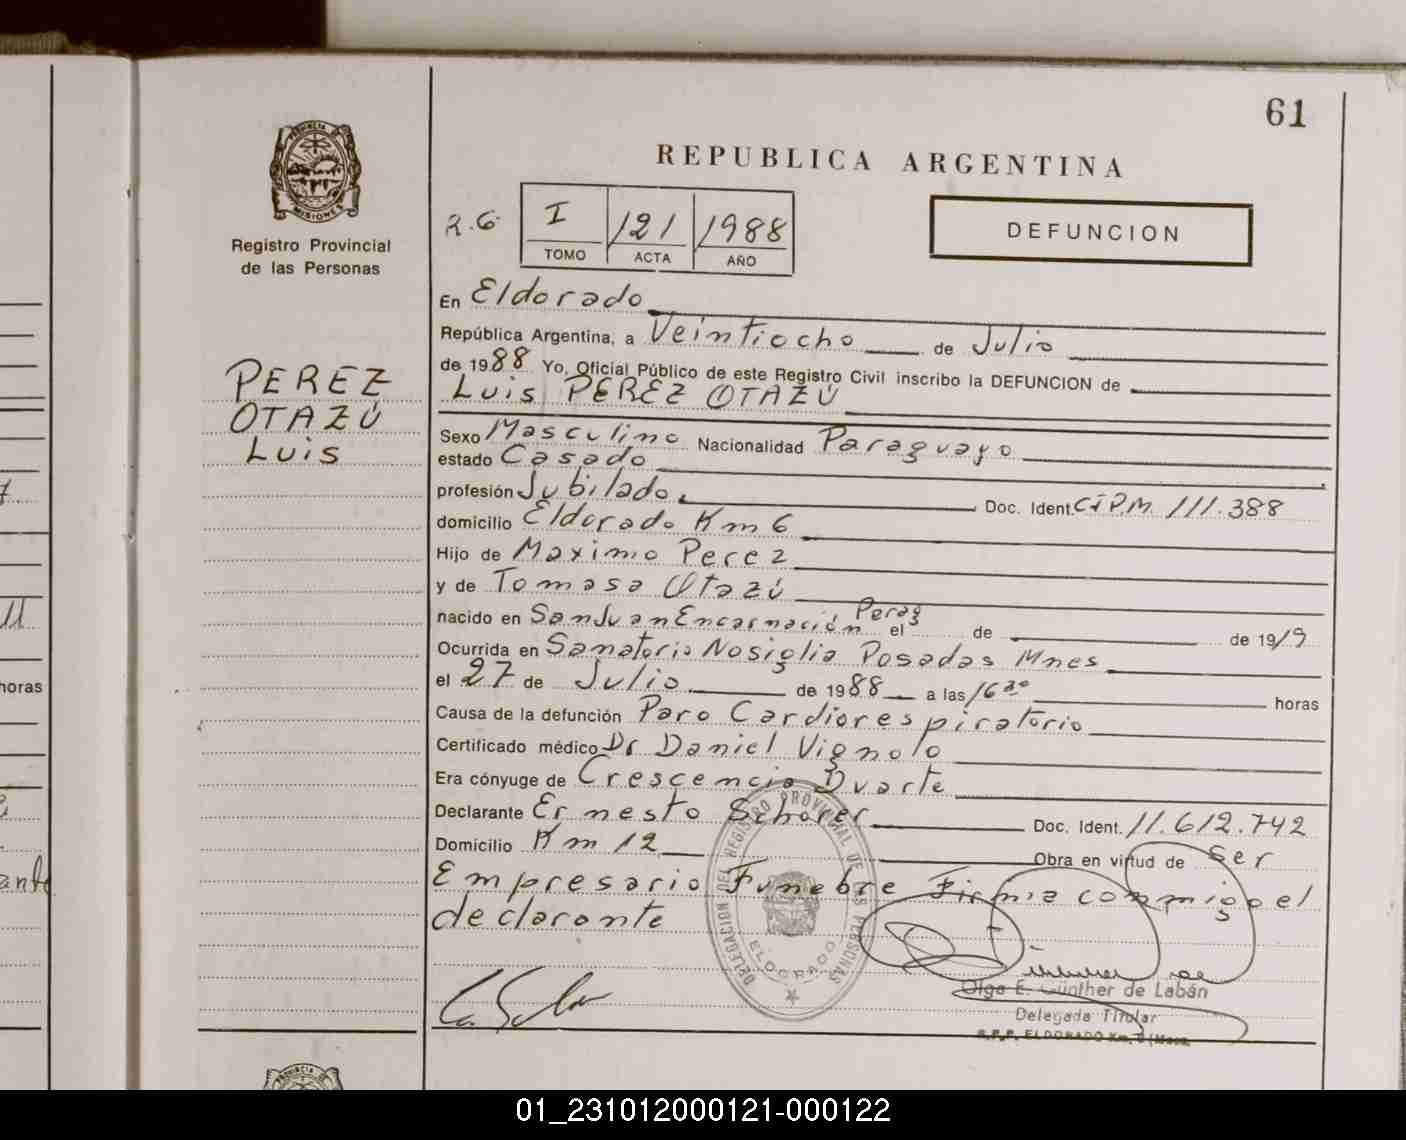 61
REPUBLICA ARGENTINA
PROVINCIA DE MISIONES
Registro Provincial
de las Personas
R.G.
I 121 1988
TOMO ACTA AÑO
DEFUNCION
PEREZ
OTAZÚ
Luis
En Eldorado
República Argentina, a Veintiocho de Julio
de 1988 Yo, Oficial Público de este Registro Civil inscribo la DEFUNCION de
Luis PEREZ OTAZÚ
Sexo Masculino Nacionalidad Paraguayo
estado Casado
profesión Jubilado. Doc. Ident. C.I.P.M. 111.388
domicilio Eldorado Km 6
Hijo de Maximo Perez
y de Tomasa Otazú
nacido en San Juan Encarnación Parag el de de 19/9
Ocurrida en Sanatorio Nosiglia Posadas Mnes
el 27 de Julio de 1988 a las 16 30 horas
Causa de la defunción Paro Cardiorespiratorio
Certificado médico Dr Daniel Vignolo
Era cónyuge de Crescencia Duarte
Declarante Ernesto Schorer Doc. Ident. 11.612.742
Domicilio Km 12 Obra en virtud de Ser
Empresario Funebre Firma conmigo el
declarante
DELEGACION DEL REGISTRO PROVINCIAL DE LAS PERSONAS
ELDORADO
Olga E. Günther de Labán
Delegada Titular
R.P.P. ELDORADO Km.
horas
01_231012000121-000122